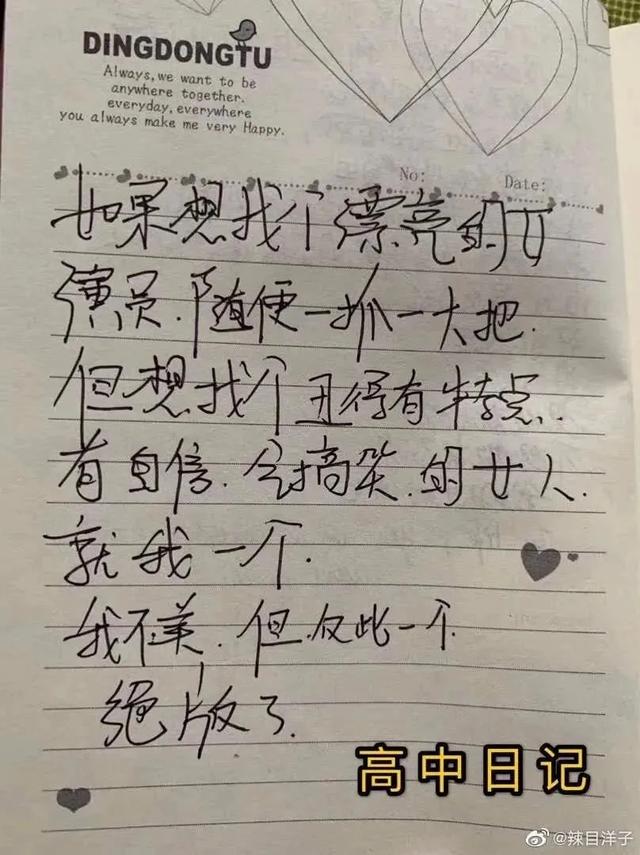 DINGDONGTU
Always, we want to be
anywhere together.
everyday, everywhere
you always make me very Happy.
No:
Date:
如果想找个漂亮的女
演员.随便一抓一大把.
但想找个丑得有特点.
有自信.会搞笑.的女人.
就我一个.
我不美.但仅此一个.
绝版了.
高中日记
@辣目洋子